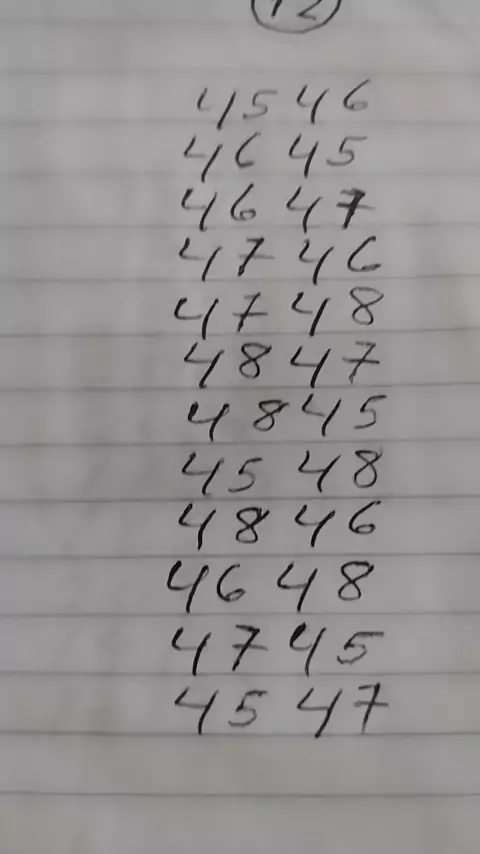 12
45 46
46 45
46 47
47 46
47 48
48 47
48 45
45 48
48 46
46 48
47 45
45 47